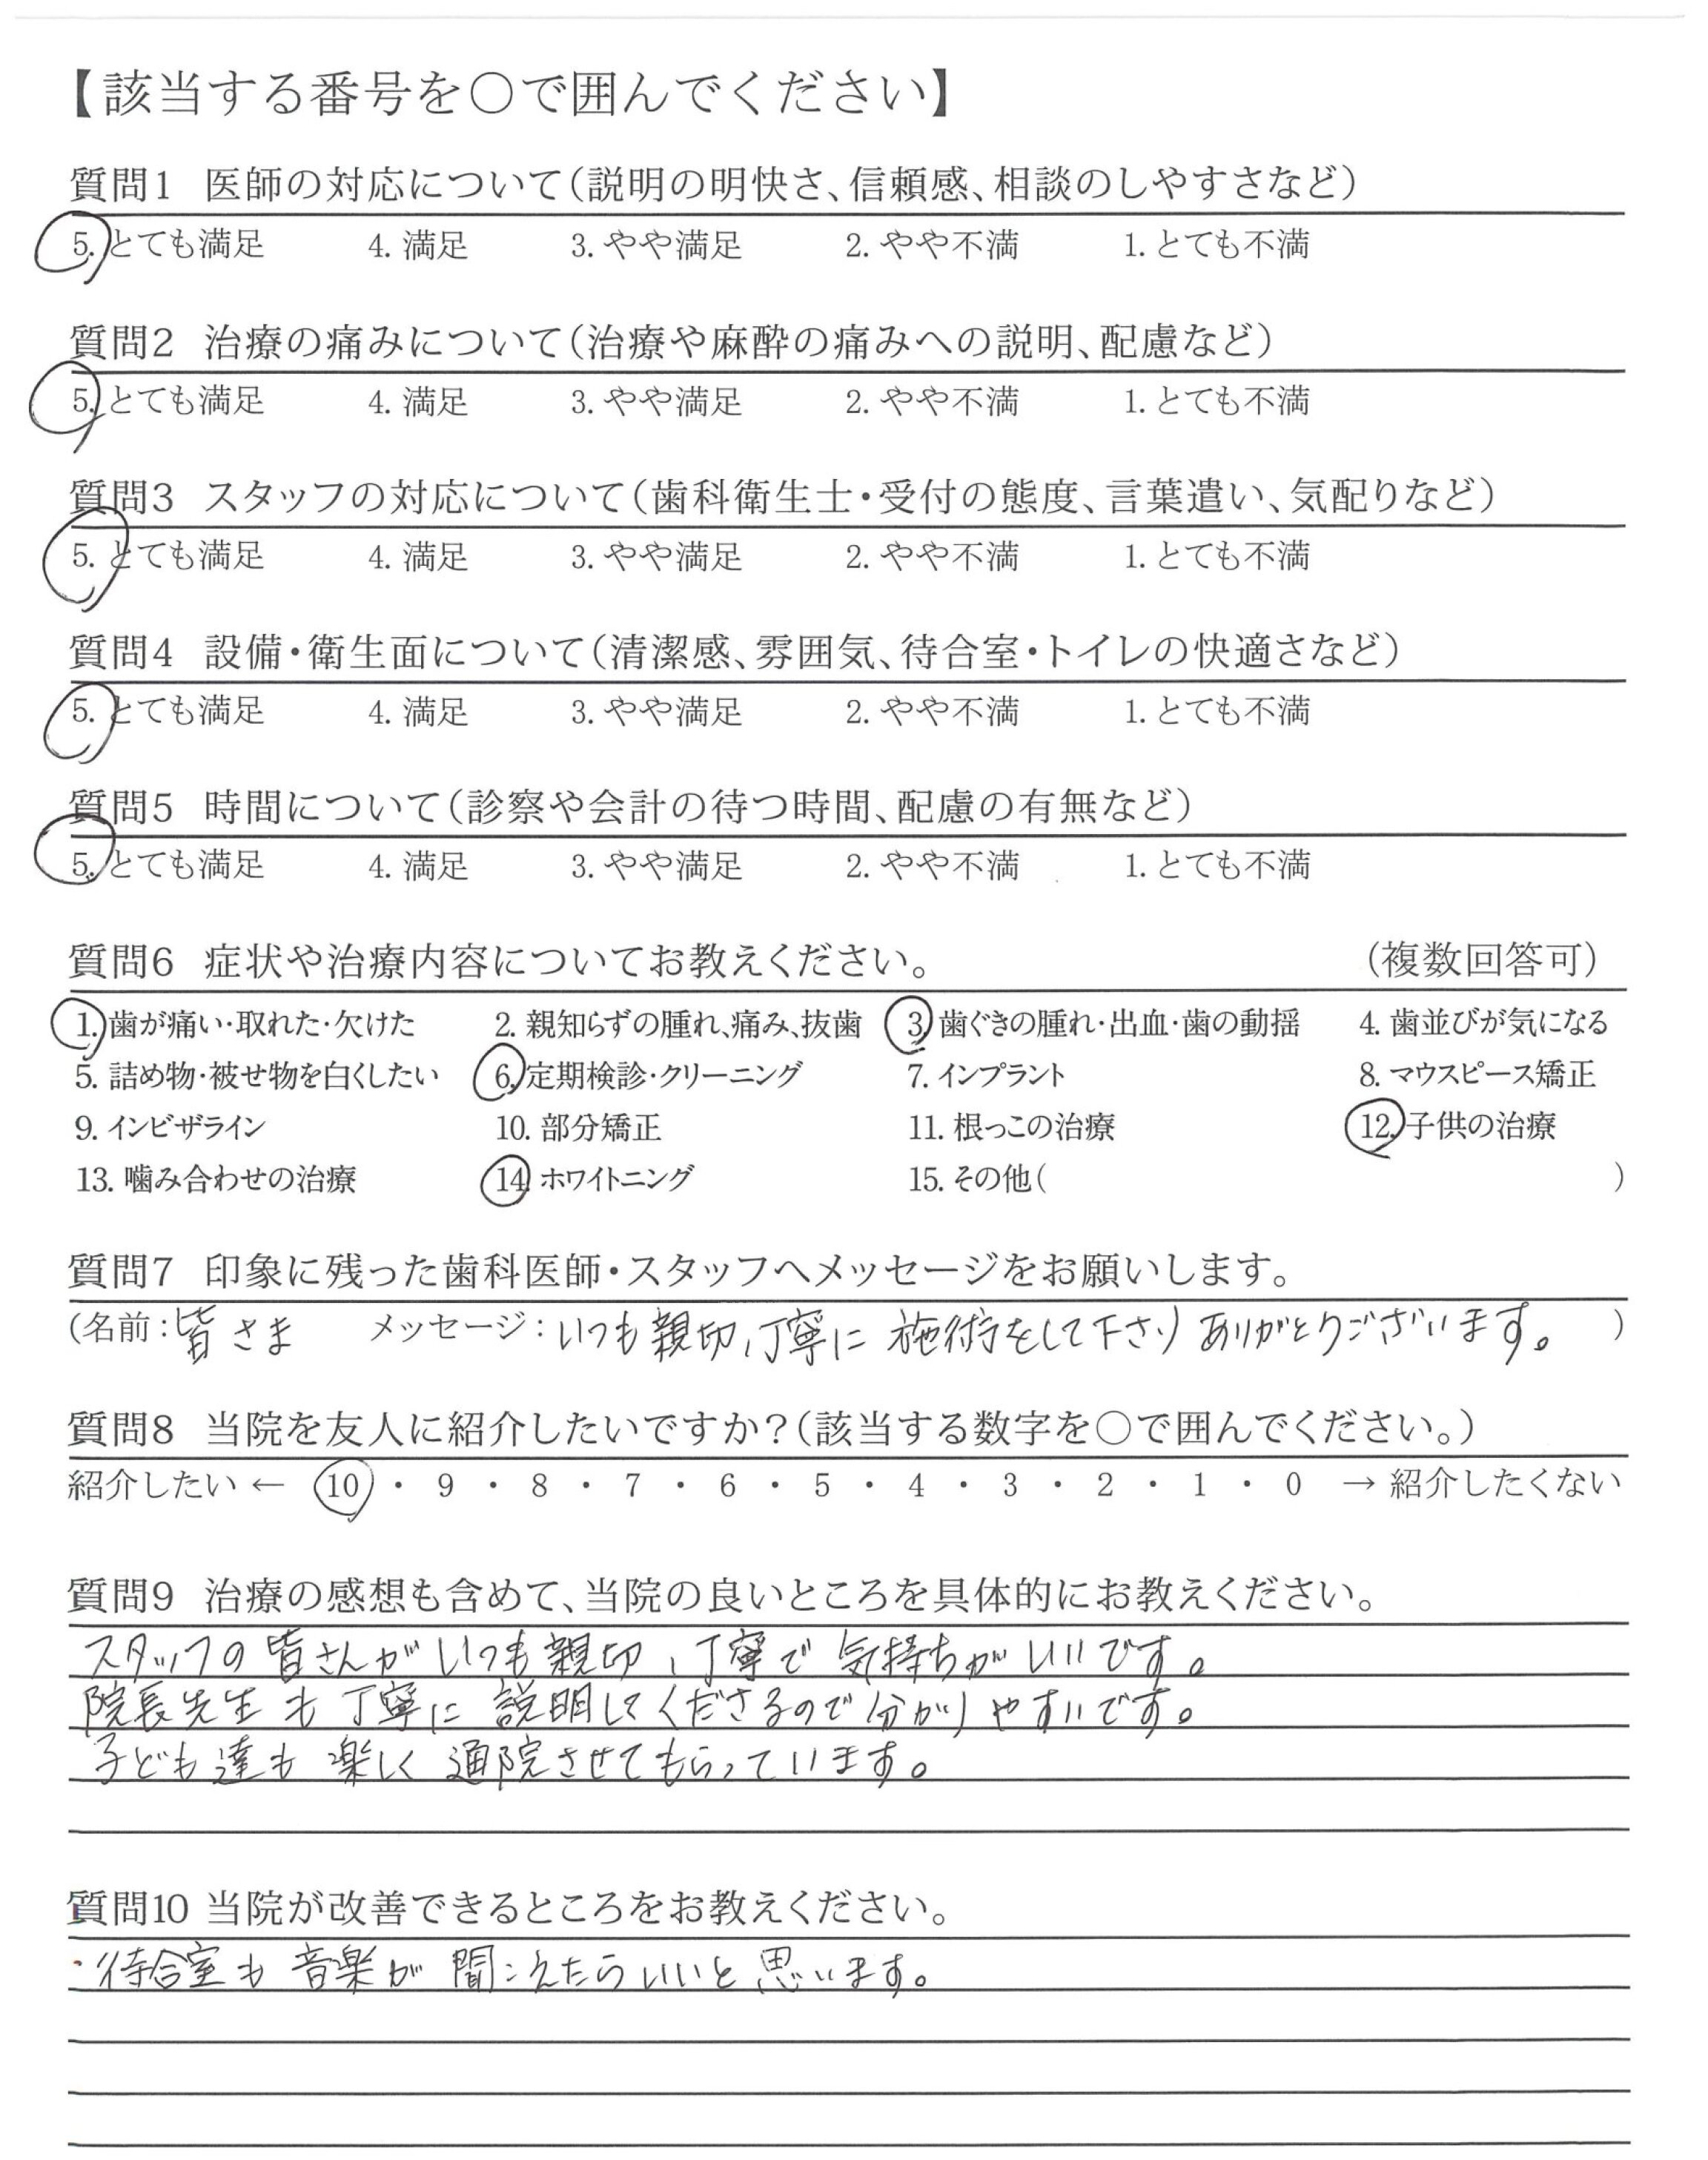 【該当する番号を○で囲んでください】
質問1 医師の対応について(説明の明快さ、信頼感、相談のしやすさなど)
5. とても満足 4. 満足 3. やや満足 2. やや不満 1. とても不満
質問2 治療の痛みについて(治療や麻酔の痛みへの説明、配慮など)
5. とても満足 4. 満足 3. やや満足 2. やや不満 1. とても不満
質問3 スタッフの対応について(歯科衛生士・受付の態度、言葉遣い、気配りなど)
5. とても満足 4. 満足 3. やや満足 2. やや不満 1. とても不満
質問4 設備・衛生面について(清潔感、雰囲気、待合室・トイレの快適さなど)
5. とても満足 4. 満足 3. やや満足 2. やや不満 1. とても不満
質問5 時間について(診察や会計の待つ時間、配慮の有無など)
5. とても満足 4. 満足 3. やや満足 2. やや不満 1. とても不満
質問6 症状や治療内容についてお教えください。 (複数回答可)
1. 歯が痛い・取れた・欠けた 2. 親知らずの腫れ、痛み、抜歯 3. 歯ぐきの腫れ・出血・歯の動揺 4. 歯並びが気になる
5. 詰め物・被せ物を白くしたい 6. 定期検診・クリーニング 7. インプラント 8. マウスピース矯正
9. インビザライン 10. 部分矯正 11. 根っこの治療 12. 子供の治療
13. 噛み合わせの治療 14. ホワイトニング 15. その他( )
質問7 印象に残った歯科医師・スタッフへメッセージをお願いします。
(名前:皆さま メッセージ:いつも親切、丁寧に 施術をして下さり ありがとうございます。 )
質問8 当院を友人に紹介したいですか?(該当する数字を○で囲んでください。)
紹介したい ← 10 ・ 9 ・ 8 ・ 7 ・ 6 ・ 5 ・ 4 ・ 3 ・ 2 ・ 1 ・ 0 → 紹介したくない
質問9 治療の感想も含めて、当院の良いところを具体的にお教えください。
スタッフの皆さんがいつも親切、丁寧で気持ちがいいです。
院長先生も丁寧に説明してくださるので分かりやすいです。
子ども達も楽しく通院させてもらっています。
質問10 当院が改善できるところをお教えください。
・待合室も音楽が聞こえたらいいと思います。